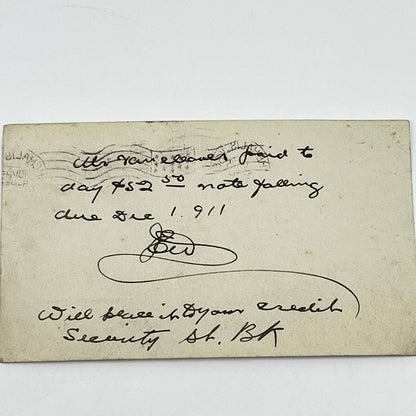 Mr Vancleaves paid to
day $52 50 note falling
due Dec 1. 911
JEW
Will place it to your credit
Security St. Bk